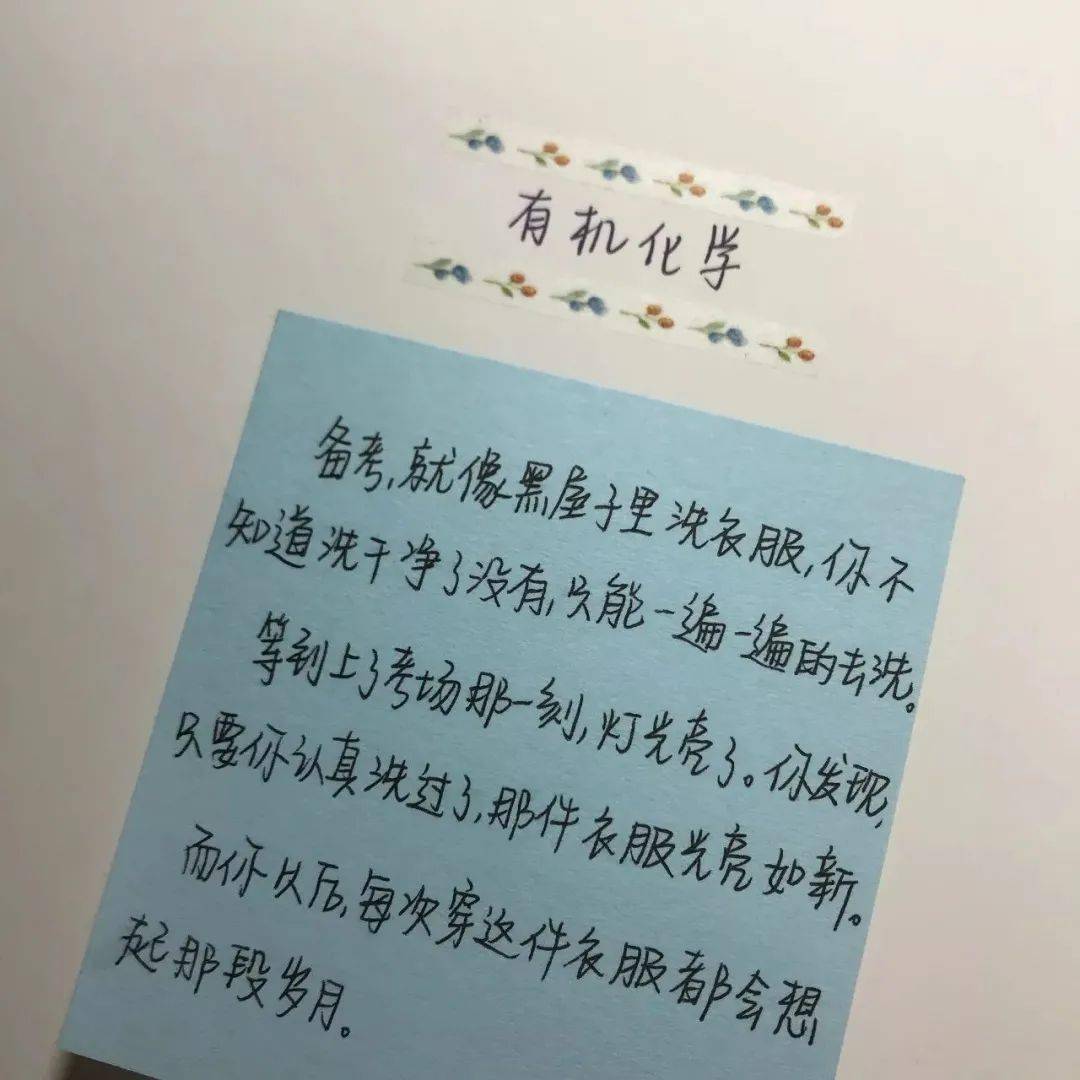 有机化学
备考,就像黑屋子里洗衣服,你不
知道洗干净了没有,只能一遍一遍的去洗。
等到上了考场那一刻,灯光亮了。你发现,
只要你认真洗过了,那件衣服光亮如新。
而你以后,每次穿这件衣服都会想
起那段岁月。